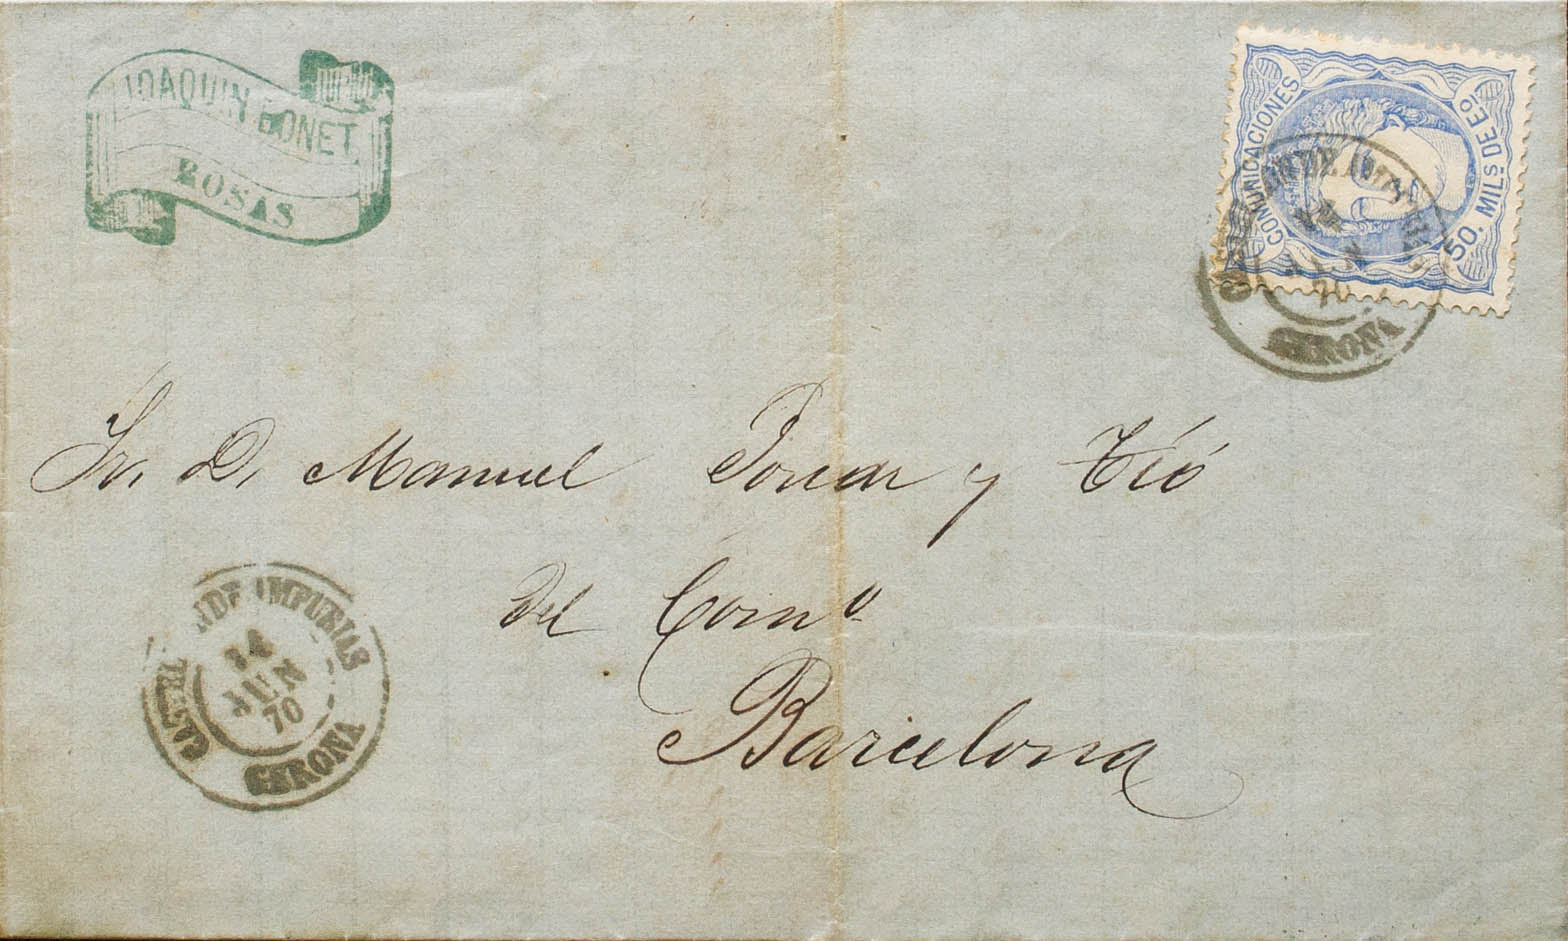 JOAQUIN BONET
ROSAS
COMUNICACIONES
50. MILS DE Eo
GERONA
70
Sr. D. Manuel y Tió
del Comº
Barcelona
DE IMPURIAS
14
JUN
70
GERONA